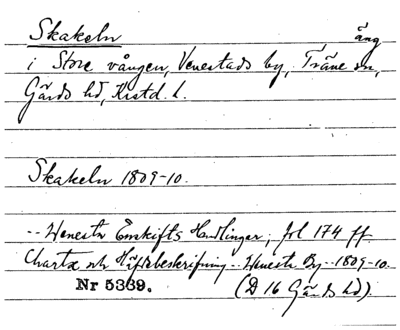 Skakeln äng
i Store vången, Venestads by, Träne sn,
Gärds hd, Kristd. l.
Skakeln 1809-10.
-- Wenesta Enskifts Handlingar, fol 174 ff.
Charta och Häftebeskrifning -- Wenesta By -- 1809-10.
Nr 5369. (D 16 Gärds hd).